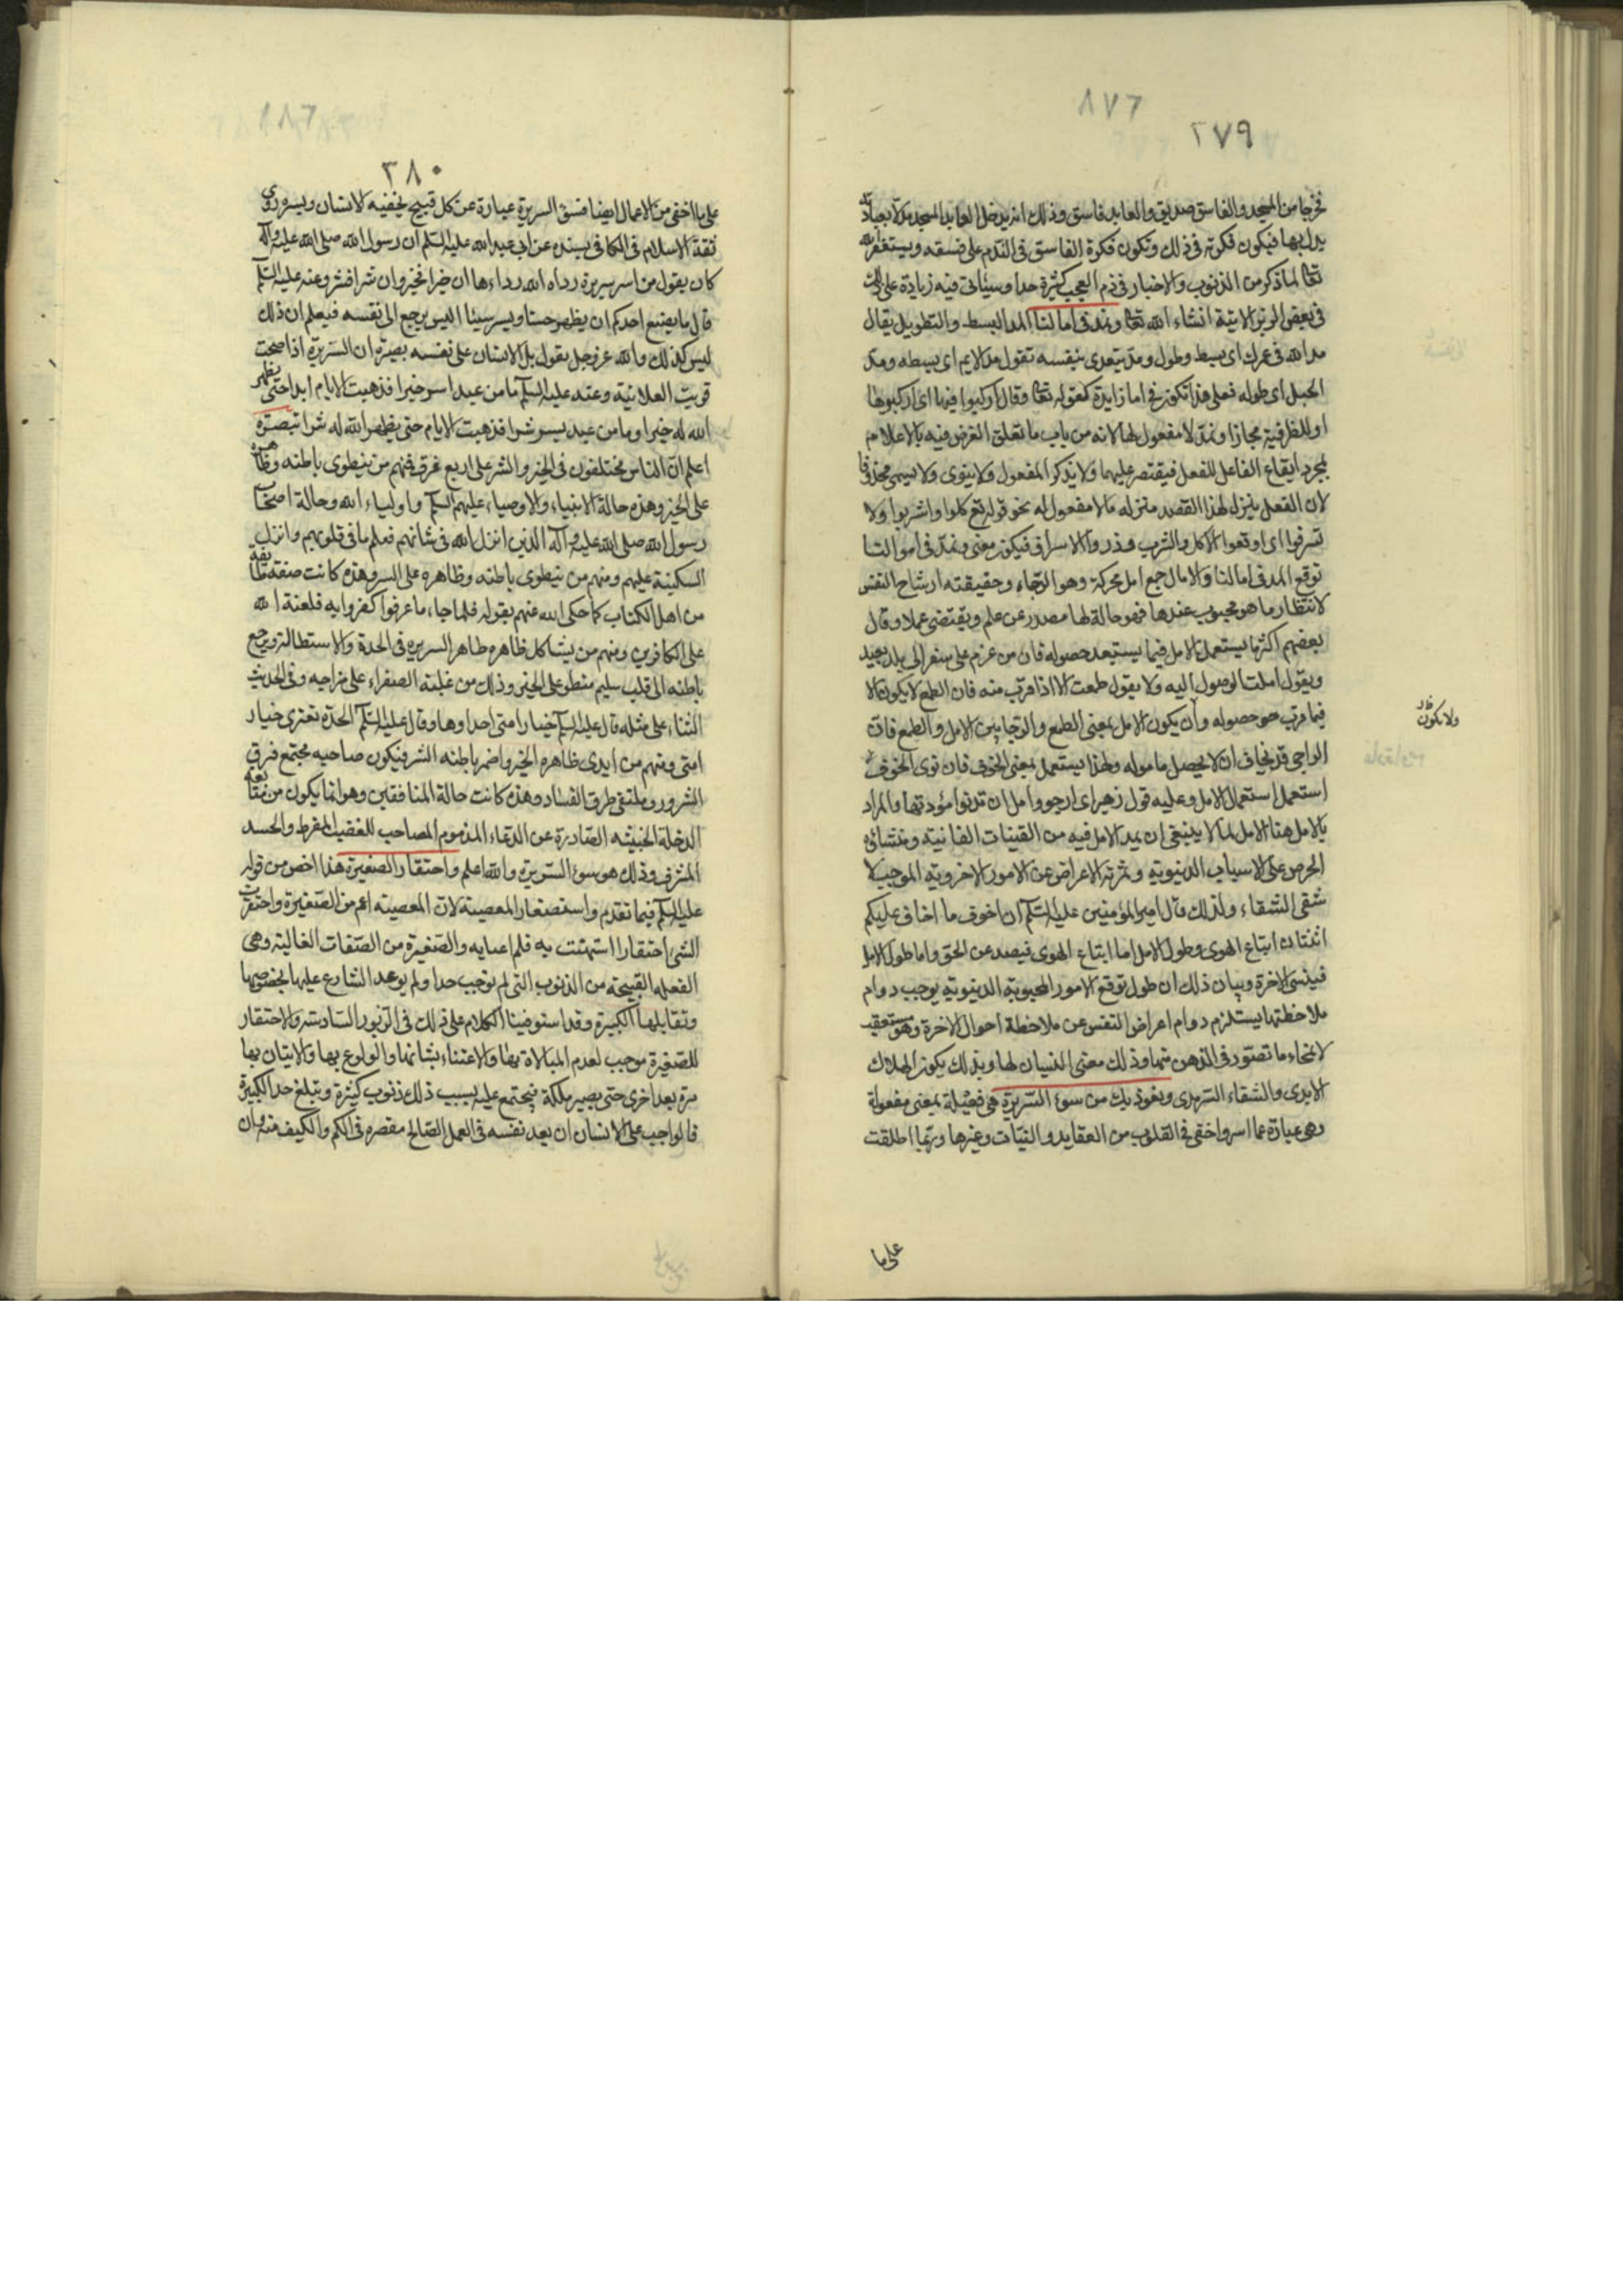 ٨٧٦
٢٧٩
فخرجا من المسجد والفاسق صديق والعابد فاسق وذلك انه يدخل العابد المسجد مدلا بعبادته
يدل بها فيكون فكرته في ذلك وتكون فكرة الفاسق في الندم على فسقه ويستغفر الله
تعالى لما ذكر من الذنوب والاخبار في ذم العجب كثيرة جدا وسيئاتى فيه زيادة على ذلك
في بعض الزبر الاتية انشاء الله تعالى ونمد في امالنا المد البسط والتطويل يقال
مد الله في عمرك اى بسط وطول ومد يتعدى بنفسه تقول مد الاديم اى بسطه ومد
الحبل اى طوله فعلى هذا تكون في اما زايدة كقوله تعالى وقال اركبوا فيها اى اركبوها
او للظرفية مجازا ونمد لا مفعول لها لانه من باب ما تعلق الغرض فيه بالاعلام
بمجرد ايقاع الفاعل للفعل فيقتصر عليهما ولا يذكر المفعول ولا ينوى ولا يسمى محذوفا
لان الفعل ينزل لهذا القصد منزله ما لا مفعول له نحو قوله تع كلوا واشربوا ولا
تسرفوا اى اوقعوا الاكل والشرب وذروا الاسراف فيكون معنى ونمد في امو النا
توقع المد في امالنا والامال جمع امل محركة وهو الرجاء وحقيقته ارتياح النفس
لانتظار ما هو محبوب عندها فهو حالة لها مصدر عن علم ويقتضى عملا وقال
بعضهم اكثر ما يستعمل الامل فيما يستبعد حصوله فان من عزم على سفر الى بلد بعيد
ويقول املت الوصول اليه ولا يقول طمعت الا اذا قرب منه فان الطمع لا يكون الا
فيما قرب حو حصوله وان يكون الامل بمعنى الطمع والرجا بين الامل والطمع فان
ولا يكون
الراجى قد يخاف ان لا يحصل ماموله ولهذا يستعمل بمعنى الخوف فان قوى الخوف
استعمل استعمال الامل وعليه قول زهير اى ارجو وامل ان تدنوا مؤدتها والمراد
بالامل هنا الامل لما لا ينبغى ان يمد الامل فيه من القينات الفانية ومنشائه
الحرص على الاسباب الدنيوية وثمرته الاعراض عن الامور الاخروية الموجب لا
شقى الشقاء ولذلك قال امير المؤمنين عليه السلام ان اخوف ما اخاف عليكم
اثنتان اتباع الهوى وطول الامل اما اتباع الهوى فيصد عن الحق واما طول الامل
فينسى الاخرة وبيان ذلك ان طول توقع الامور المحبوبة الدنيوية يوجب دوام
ملاحظتها يستلزم دوام اعراض النفس عن ملاحظة احوال الاخرة وهو مستعقب
لانمحاء ما تصور في الذهن منها وذلك معنى النسيان لها وبذلك يكون الهلاك
الابدى والشقاء السرمدى ونعوذ بك من سوء السريرة هى فعيلة بمعنى مفعولة
وهى عبارة عما اسر واخفى في القلوب من العقايد والنيات وغيرها وربما اطلقت
على ما
٣٨٠
على ما اخفى من الاعمال ايضا فسوء السريرة عبارة عن كل قبيح يخفيه الانسان ويسر وروى
ثقة الاسلام في الكافى بسنده عن ابى عبد الله عليه السلام ان رسول الله صلى الله عليه وآله
كان يقول من اسر سريرة رداه الله رداءها ان خيرا فخير وان شرا فشر وعنه عليه السلام
قال ما يصنع احدكم ان يظهر حسنا ويسر سيئا اليس يرجع الى نفسه فيعلم ان ذلك
ليس كذلك والله عز وجل يقول بل الانسان على نفسه بصيرة ان السريرة اذا صحت
قويت العلانية وعنه عليه السلام ما من عبد اسر خيرا فذهبت الايام ابدا حتى يظهر
الله له خيرا وما من عبد يسر شرا فذهبت الايام حتى يظهر الله له شرا تبصرة
اعلم ان الناس مختلفون في الخير والشر على اربع فرق فمنهم من ينطوى باطنه وظاهره
على الخير وهذه حالة الانبياء والاوصياء عليهم السلم واولياء الله وحالة اصحاب
رسول الله صلى الله عليه وآله الذين انزل الله في شانهم فعلم ما في قلوبهم وانزل
السكينة عليهم ومنهم من ينطوى باطنه وظاهره على السر وهذه كانت صفة طايفة
من اهل الكتاب كما حكى الله عنهم بقوله فلما جاءهم ما عرفوا كفروا به فلعنة الله
على الكافرين ومنهم من يشاكل ظاهره ظاهر السريره في الحدة والاستطالة ويرجع
باطنه الى قلب سليم منطو على الخير وذلك من غلبة الصفراء على مزاجه وفي الحديث
الثناء على مثله قال عليه السلم خيار امتى احداوها وقال عليه السلم الحدة تعترى خيار
امتى ومنهم من ايدى ظاهره الخير واضمر باطنه الشر فيكون صاحبه مجتمع فرق
الشرور وملتقى طرق الفساد وهذه كانت حالة المنافقين وهو انما يكون من نقابعه
الدخلة الخبيثه الصادرة عن الدعاء المذموم المصاحب للغضب المفرط والحسد
المشرف وذلك هو سوء السريرة والله اعلم واحتقار الصغيرة هذا اخص من قوله
عليه السلم فيما تقدم واستصغار المعصية لان المعصيته اعم من الصغيرة واحتقرت
الشئ احتقارا استهنت به فلم اعبا به والصغيرة من الصفات الغالبة وهى
الفعله القبيحة من الذنوب التى لم توجب حدا ولم يوعد الشارع عليها بخصوصها
وتقابلها الكبيرة وقد استوفينا الكلام على ذلك في الزبور السادسة والاحتقار
للصغيرة موجب لعدم المبالاة بها والاعتناء بشانها والولوع بها والاتيان بها
مرة بعد اخرى حتى يصير ملكة فيجتمع عليه بسبب ذلك ذنوب كثيرة ويبلغ حد الكبيرة
فالواجب على الانسان ان يعد نفسه في العمل الصالح مقصره في الكم والكيف منه وان